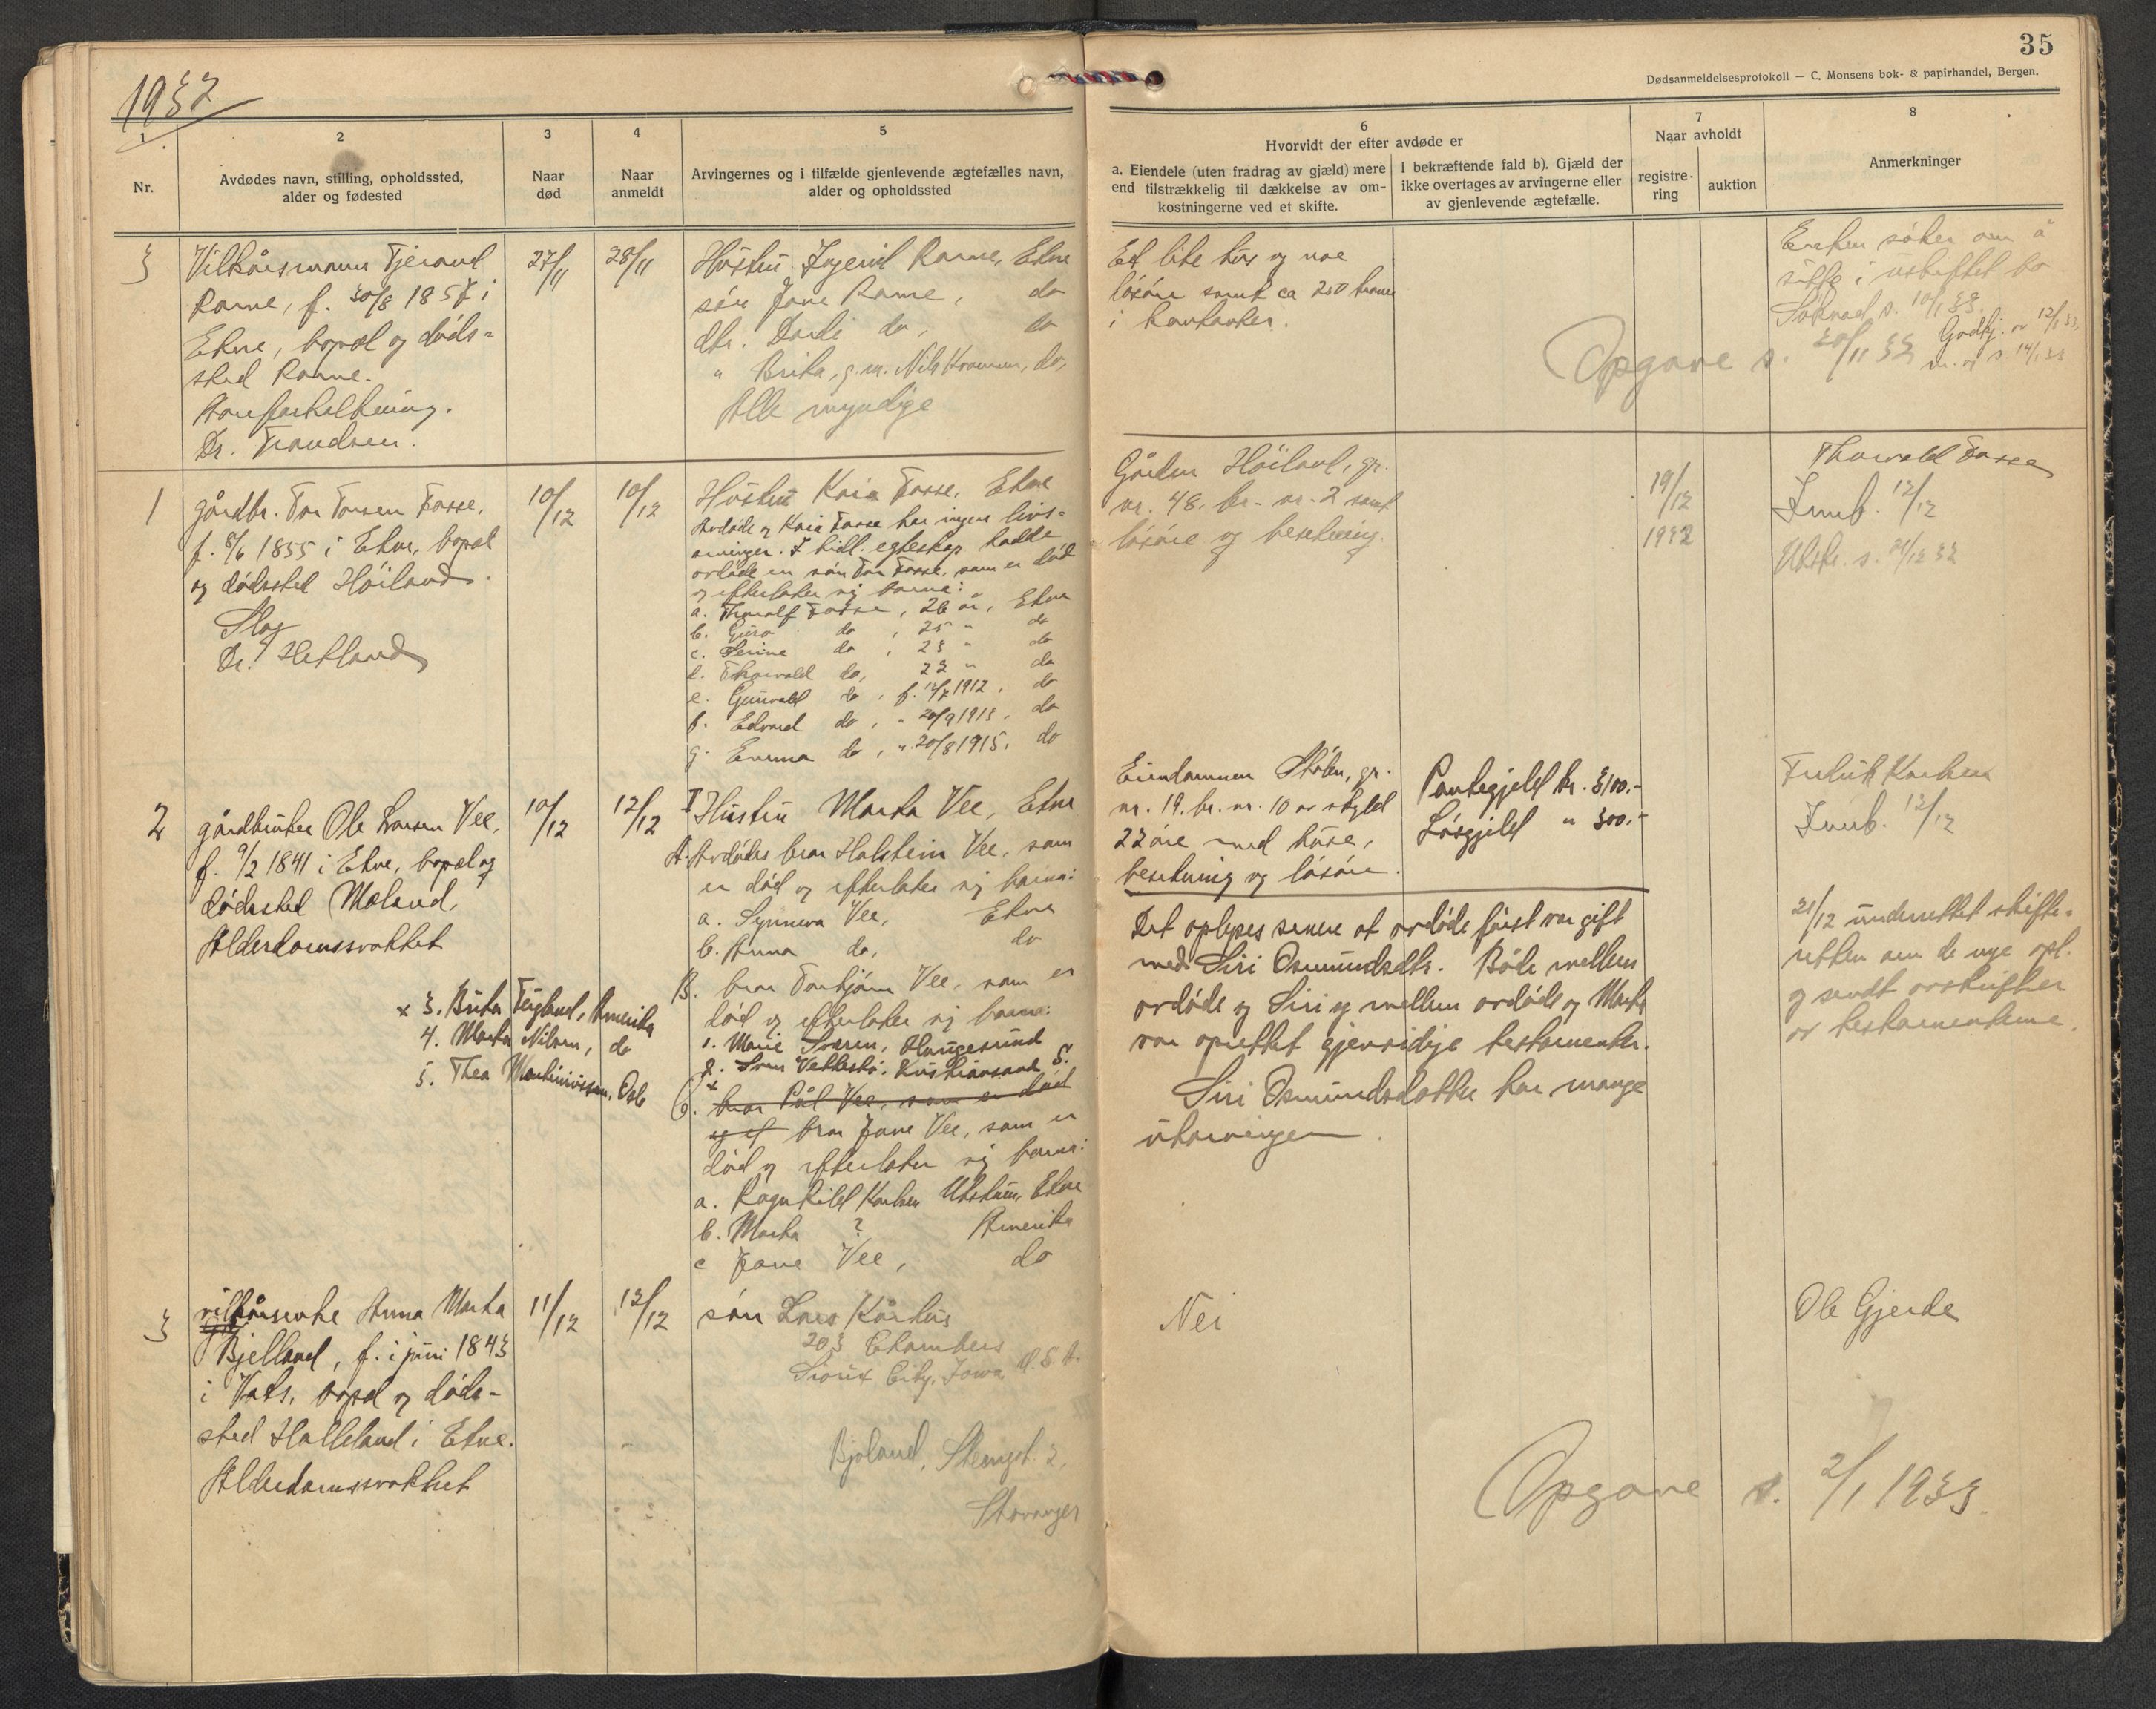 1932
35
Dødsanmeldelsesprotokoll — C. Monsens bok- & papirhandel, Bergen.
1
Nr.
2
Avdødes navn, stilling, opholdssted,
alder og fødested
3
Naar
død
4
Naar
anmeldt
5
Arvingernes og i tilfælde gjenlevende ægtefælles navn,
alder og opholdssted
6
Hvorvidt der efter avdøde er
a. Eiendele (uten fradrag av gjæld) mere
end tilstrækkelig til dækkelse av om-
kostningerne ved et skifte.
I bekræftende fald b). Gjæld der
ikke overtages av arvingerne eller
av gjenlevende ægtefælle.
7
Naar avholdt
registre-
ring
auktion
8
Anmerkninger
3
Vilkårsmann Tjerand
Rame, f. 30/8 1857 i
Etne, bopæl og døds-
sted Rame.
Åreforkalkning.
Dr. Frandsen.
27/11
28/11
Hustru Ingerid Rame, Etne
søn Jone Rame, do
dtr. Dordi do, do
" Brita, g.m. Nils, do,
Alle myndige
Et lite hus og noe
løsøre samt ca 250 kroner
i kontanter.
Enken søker om å
sitte i uskiftet bo
Søknad s. 10/1 33.
Godkj. av 12/1 33,
s. 14/1 33
Opgave s. 30/11 32
1
gårdbr. Tor Torsen Fosse,
f. 8/6 1855 i Etne, bopæl
og dødssted Høiland.
Slag
Dr. Hetland
10/12
10/12
Hustru Kaia Fosse, Etne
Avdøde og Kaia Fosse har ingen livs-
arvinger. I tidl. egteskap hadde
avdøde en søn Tor Fosse, som er død
og efterlater sig barna:
a. Thoralf Fosse, 26 år, Etne
b. Guro do, 25 " do
c. Serine do, 23 " do
d. Thorvald do, 22 " do
e. Gunvald do, f. 12/7 1912, do
f. Edvard do, " 20/9 1913, do
g. Emma do, " 20/8 1915, do
Gården Høiland, gr.
nr. 48, br. nr. 2 samt
løsøre og besetning.
19/12
1932
Thorvald Fosse
Innb. 12/12
Utskr. s. 21/12 32
2
gårdbruker Ole Larsen Vee,
f. 9/2 1841 i Etne, bopæl og
dødssted Moland,
Alderdomssvakhet
10/12
12/12
I Hustru Marta Vee, Etne
A. Avdødes bror Halstein Vee, som
er død og efterlater sig barna:
a. Synneva Vee, Etne
b. Anna do, do
B. bror Torbjørn Vee, som er
død og efterlater sig barna:
1. Marie Sveen, Haugesund
2. Sven Vetteshi, Kristiansand S.
x 3. Brita Teigland, Amerika
4. Marta Nilsen, do
5. Thea Martinussen, Oslo
C. bror Pål Vee, som er død
og ef bror Jone Vee, som er
død og efterlater sig barna:
a. Ragnhild Karlsen, Etne
b. Marta ? Amerika
c Jone Vee, do
Eiendommen Stølen, gr.
nr. 19, br. nr. 10 av skyld
22 øre med huse,
besetning og løsøre.
Pantegjeld kr. 3100.-
Løsgjeld " 300.-
Det oplyses senere at avdøde først var gift
med Siri Osmundsdtr. Både mellem
avdøde og Siri og mellem avdøde og Marta
var oprettet gjensidige testamenter.
Siri Osmundsdatter har mange
utarvinger.
Fredrik Karlsen
Innb. 12/12
21/12 underrettet skifte-
retten om de nye opl.
og sendt avskrifter
av testamentene.
3
vilkårsenke Anna Marta
Bjelland, f. i juni 1843
i Vats, bopæl og døds-
sted Halleland i Etne.
Alderdomssvakhet
11/12
12/12
søn Lars Kårhus
203 Chambers
Sioux City, Iowa, U.S.A.
Bjoland, Stemgt. 2,
Stavanger
Nei
Ole Gjerde
Opgave s. 2/1 1933.